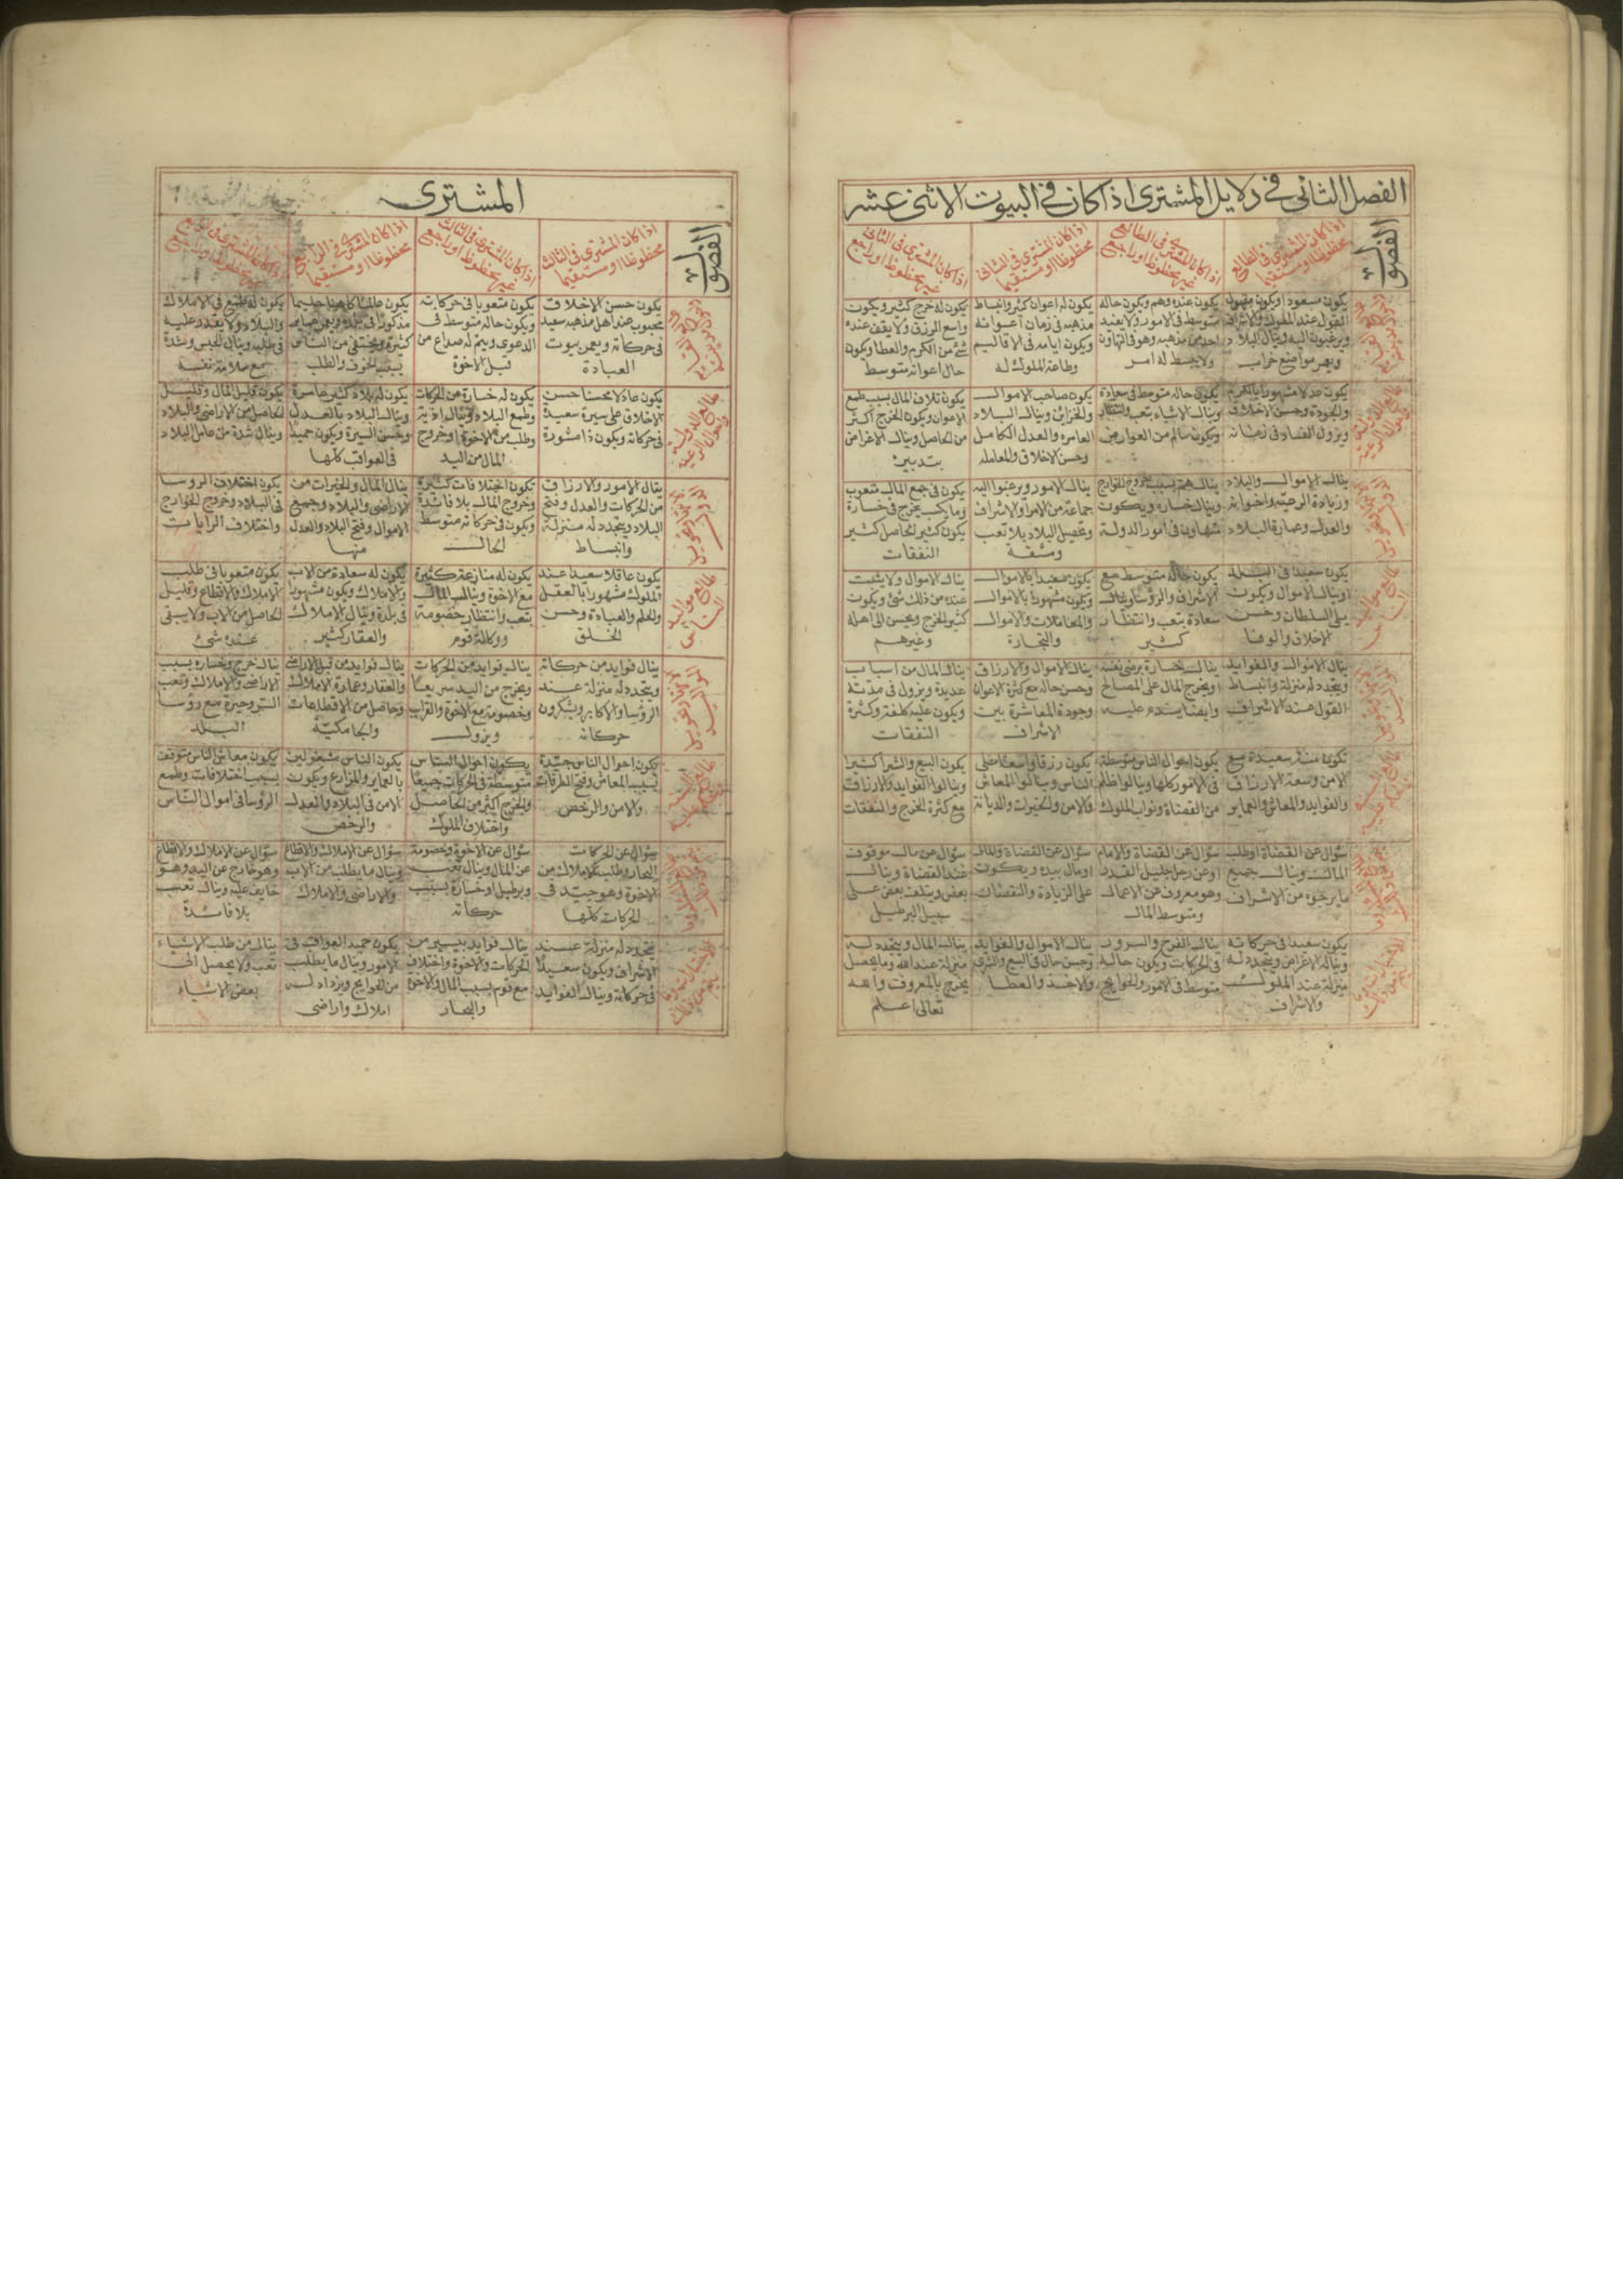 الفصل الثانى فى دلايل المشترى اذا كان فى البيوت الاثنى عشر
الفصول
اذا كان المشترى فى الطالع
محظوظا او مستقيما
اذا كان المشترى فى الطالع
غير محظوظ او راجع
اذا كان المشترى فى الثانى
محظوظا او مستقيما
اذا كان المشترى فى الثانى
غير محظوظ او راجع
يكون مسعودا ويكون مقبول
القول عند الملوك والاشراف
ويرغبون اليه وينال البلاد
ويعمر مواضع خراب
يكون عنده وهم ويكون حاله
متوسط فى الامور ولا يفيد
احد من مذهبه وهو فى التهاون
ولا يبسط له امر
يكون له اعوان كثير وانبساط
مذهبه فى زمان اعوانه
ويكون ايامه فى الاقاليم
وطاعة الملوك له
يكون له خرج كثير ويكون
واسع الرزق ولا يقف عنده
شئ من الكرم والعطا ويكون
حال اعوانه متوسط
يكون عدلا مشهورا بالكرم
والجودة وحسن الاخلاق
ويزول الفساد فى زمانه
يكون حاله متوسط فى سعادة
وينال الاشياء بتعب وانتظار
ويكون سالم من العوارض
يكون صاحب الاموال
والخزائن وينال البلاد
العامره والعدل الكامل
وحسن الاخلاق والمعامله
يكون تلاف المال بسبب طمع
الاعوان ويكون الخرج اكثر
من الحاصل وينال الاغراض
بتدبير
ينال الاموال والبلاد
وزيادة الرعيه واخوانه
والعدل وعمارة البلاد
ينال هم بسبب خروج الخوارج
وينال خساره ويكون
متهاون فى امور الدولة
ينال الامور ويرغبوا اليه
جماعة من الامرا والاشراف
وتحصيل البلاد بلا تعب
ومشقة
يكون فى جمع المال متعوب
وما يكسب يخرج فى خسارة
يكون كثير الحاصل كثير
النفقات
يكون سعيدا فى البلد
وينال الاموال ويكون
يلى السلطان وحسن
الاخلاق والوفا
يكون حاله متوسط مع
الاشراف والرؤسا وينال
سعادة بتعب وانتظار
كثير
يكون سعيدا بالاموال
ويكون مشهورا بالاموال
والمعاملات والاموال
والتجارة
ينال الاموال ولا يثبت
عنده من ذلك شئ ويكون
كثير الخرج ويحسن الى اهله
وغيرهم
ينال الاموال والفوايد
ويتجدد له منزلة وانبساط
القول عند الاشراف
ينال خسارة برضى نفسه
ويخرج المال على المصالح
وايضا يندم عليه
ينال الاموال والارزاق
وحسن حاله مع كثرة الاعوان
وجودة المعاشرة بين
الاشراف
ينال المال من اسباب
عديدة ويزول فى مدته
ويكون عليه كلفة وكثرة
النفقات
تكون سنة سعيدة مع
الامن وسعة الارزاق
والفوايد والمعاش والعماير
يكون احوال الناس متوسطة
فى الامور كلها وينالوا ظلم
من القضاة ونواب الملوك
يكون رزقا واسعا على
الناس وينالوا المعاش
فالامن والخيرات والديانة
يكون البيع والشرا كثير
وينالوا الفوايد والارزاق
مع كثرة الخرج والنفقات
سؤال عن القضاة او طلب
المال وينال جميع
ما يرجوه من الاشراف
سؤال عن القضاة والامام
او عن رجل جليل القدر
وهو معروف عن الاعمال
ومتوسط المال
سؤال عن القضاة والمال
او مال بيده ويكون
على الزيادة والنقصان
سؤال عن مال موقوف
عند القضاة وينال
بعض ويتلف بعض على
سبيل البرطيل
يكون سعيدا فى حركاته
وينال الاغراض ويتجدد له
منزلة عند الملوك
والاشراف
ينال الفرح والسرور
فى الحركات ويكون حاله
متوسط فى الامور والحوايج
ينال الاموال والفوايد
وحسن حال فى البيع والشرى
والاخذ والعطا
ينال المال ويتجدد له
منزلة عند الله وما يحصل
يخرج بالمعروف والله
تعالى اعلم
المشترى
الفصول
اذا كان المشترى فى الثالث
محظوظا او مستقيما
اذا كان المشترى فى الثالث
غير محظوظ او راجع
اذا كان المشترى فى الرابع
محظوظا او مستقيما
اذا كان المشترى فى الرابع
غير محظوظ او راجع
يكون حسن الاخلاق
محبوب عند اهل مذهبه سعيد
فى حركاته ويعمر بيوت
العبادة
يكون متعوبا فى حركاته
ويكون حاله متوسط فى
الدعوى ويتم له صداع من
قبل الاخوة
كثيرة ويختفى من الناس
بسبب الخوف والطلب
يكون له طمع فى الاملاك
والبلاد ولا يقدر عليه
يكون عادلا محسنا حسن
الاخلاق على سيرة سعيد
فى حركاته ويكون ذا مشورة
يكون له خسارة من الحركات
وطمع البلاد وينال اذية
وطلب من الاخوة وخروج
المال من اليد
يكون له بلاد كثير عامرة
وينال البلاد بالعدل
وحسن السيرة ويكون حميدا
فى العواقب كلها
يكون قليل المال وقليل
الحاصل من الاراضى والبلاد
وينال شدة من عامل البلاد
ينال الامور والارزاق
من الحركات والعدل وفتح
البلاد ويتجدد له منزلة
وانبساط
تكون اختلافات كثيرة
وخروج المال بلا فائدة
ويكون فى حركاته متوسط
الحال
ينال المال والخيرات من
الاراضى والبلاد وجميع
الاموال وفتح البلاد والعدل
منها
يكون اختلاف الروسا
فى البلاد وخروج الخوارج
واختلاف الرايات
يكون عاقلا سعيدا عند
الملوك مشهورا بالعقل
والعلم والعبادة وحسن
الخلق
يكون له منازعة كثيرة
مع الاخوة وينال المال
بتعب وانتظار خصومة
ووكالة قوم
يكون له سعادة من الاب
والاملاك ويكون مشهورا
فى بلده وينال الاملاك
والعقار كثير
يكون متعوبا فى طلب
الاملاك والاقطاع وقليل
الحاصل من الاب ولا يبقى
عنده شئ
ينال فوايد من حركاته
ويتجدد له منزلة عند
الرؤسا والاكابر ويشكرون
حركاته
ينال فوايد من الحركات
ويخرج من اليد سريعا
وخصومة مع الاخوة والقراب
ويزول
ينال فوايد من قبل الاراضى
والعقار وعمارة الاملاك
وحاصل من الاقطاعات
والجامكية
ينال خرج وخساره بسبب
الاراضى والاملاك وتعب
السر وحيرة مع رؤسا
البلد
يكون احوال الناس جيدة
بسبب المعاش وفتح الطرقات
والامن والرخص
يكون احوال الناس
متوسطة فى الحركات جميعا
والخرج اكثر من الحاصل
واختلاف الملوك
يكون الناس مشغولين
بالعماير والمزارع ويكون
الامن فى البلاد والعدل
والرخص
يكون معاش الناس متوقف
بسبب اختلافات وطمع
الروسا فى اموال الناس
سؤال عن الحركات
البحار وطلب الاملاك من
الاخوة وهو جيد فى
الحركات كلها
سؤال عن الاخوة وخصومة
عن المال وينال تعب
وبرطيل او خسارة بسبب
حركاته
سؤال عن الاملاك والاقطاع
وينال ما يطلب من الاب
والاراضى والاملاك
سؤال عن الاملاك والاقطاع
وهو خارج عن اليد وهو
خايف عليه وينال تعب
بلا فائدة
يتجدد له منزلة عند
الاشراف ويكون سعيدا
فى حركاته وينال الفوايد
ينال فوايد بيسير من
الحركات والاخوة واختلاف
مع قوم بسبب المال والاخوة
والبحار
يكون حميد العواقب فى
الامور وينال ما يطلب
من الحوايج ويزداد له
املاك واراضى
ينال من طلب الاشياء
تعب ولا يحصل الى
بعض الاشياء